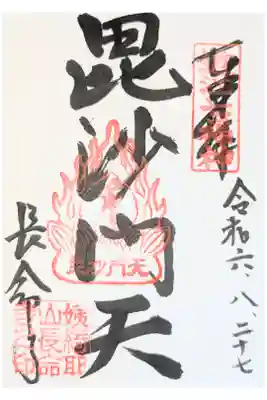 令和六、八、二十七
毘沙門天
天門沙毘
長命寺
姨綺耶
山長命
寺之印